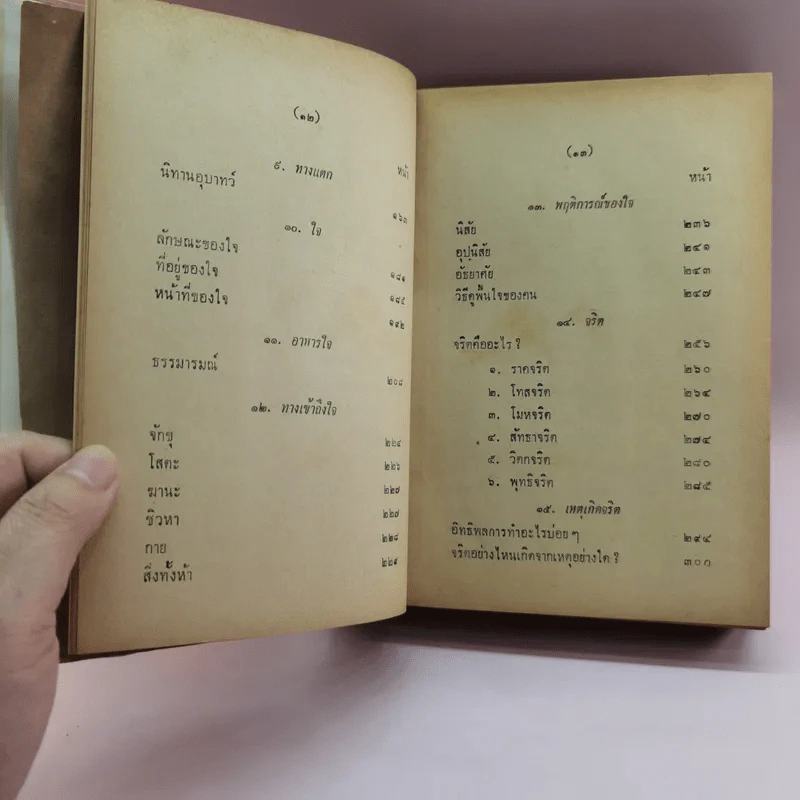 (๑๒)
๙. ทางแตก หน้า
นิทานอุบาทว์ ๑๖๓
๑๐. ใจ
ลักษณะของใจ ๑๘๑
ที่อยู่ของใจ ๑๘๕
หน้าที่ของใจ ๑๙๒
๑๑. อาหารใจ
ธรรมารมณ์ ๒๐๘
๑๒. ทางเข้าถึงใจ
จักขุ ๒๒๔
โสตะ ๒๒๖
ฆานะ ๒๒๗
ชิวหา ๒๒๗
กาย ๒๒๘
สิ่งทั้งห้า ๒๒๙
(๑๓)
หน้า
๑๓. พฤติการณ์ของใจ
นิสัย ๒๓๖
อุปนิสัย ๒๔๑
อัธยาศัย ๒๔๓
วิธีดูพื้นใจของคน ๒๔๗
๑๔. จริต
จริตคืออะไร ? ๒๕๖
๑. ราคจริต ๒๖๐
๒. โทสจริต ๒๖๔
๓. โมหจริต ๒๗๐
๔. สัทธาจริต ๒๗๔
๕. วิตกจริต ๒๘๐
๖. พุทธิจริต ๒๘๕
๑๕. เหตุเกิดจริต
อิทธิพลการทำอะไรบ่อย ๆ ๒๙๔
จริตอย่างไหนเกิดจากเหตุอย่างใด ?